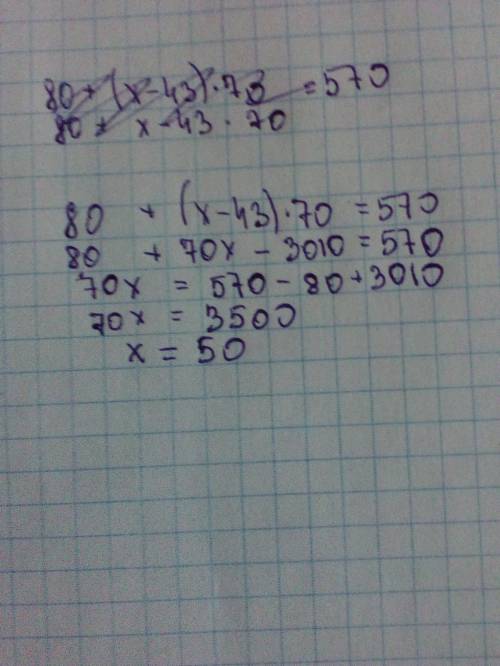 80 + (x-43)·70 = 570
80 + x-43·70
80 + (x-43)·70 = 570
80 + 70x - 3010 = 570
70x = 570 - 80 + 3010
70x = 3500
x = 50